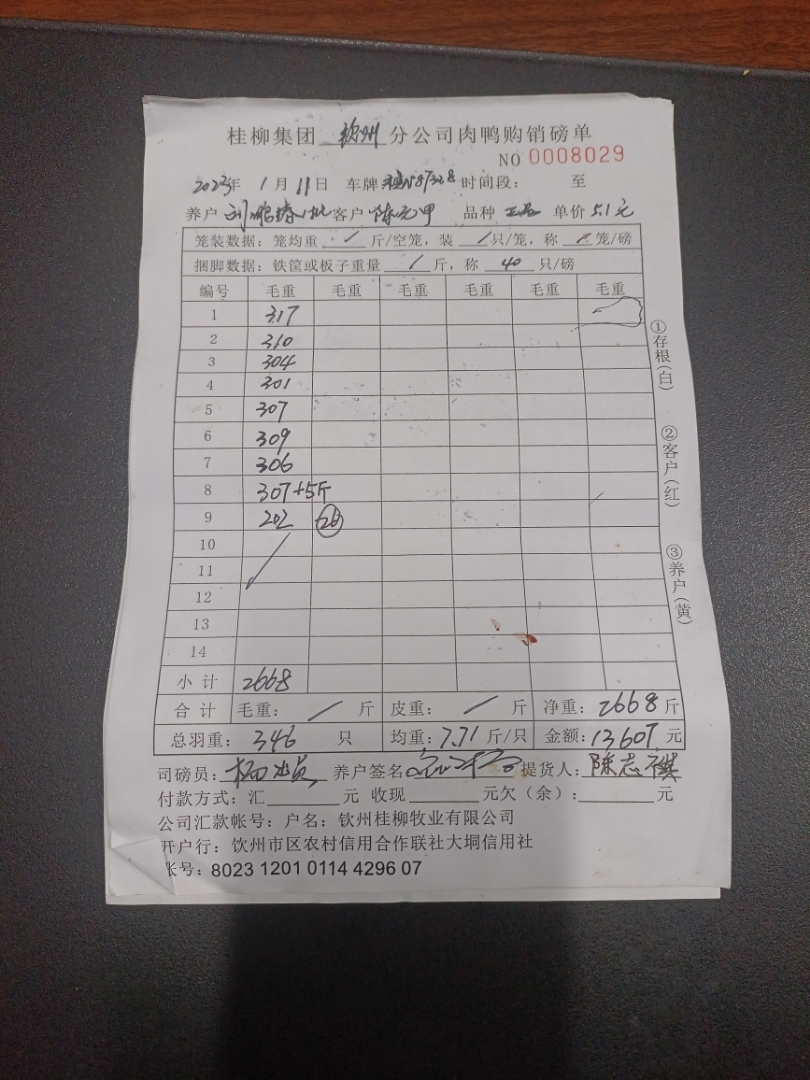 桂柳集团 钦州 分公司肉鸭购销磅单
NO 0008029
2023年 1月11日 车牌 时间段： 至
养户 刘 客户 陈元甲 品种 正品 单价 5.1元
笼装数据：笼均重 / 斤/空笼，装 / 只/笼，称 / 笼/磅
捆脚数据：铁筐或板子重量 / 斤，称 40 只/磅
编号 毛重 毛重 毛重 毛重 毛重 毛重
1 317
2 310
3 304
4 301
5 307
6 309
7 306
8 307+5斤
9 202
10
11
12
13
14
小计 2668
合计 毛重： / 斤 皮重： / 斤 净重：2668斤
总羽重：346 只 均重：7.71斤/只 金额：13607元
司磅员： 养户签名 提货人：陈志祺
付款方式：汇 元 收现 元欠（余）： 元
公司汇款帐号：户名：钦州桂柳牧业有限公司
开户行：饮州市区农村信用合作联社大垌信用社
帐号：8023 1201 0114 4296 07
①存根（白）
②客户（红）
③养户（黄）